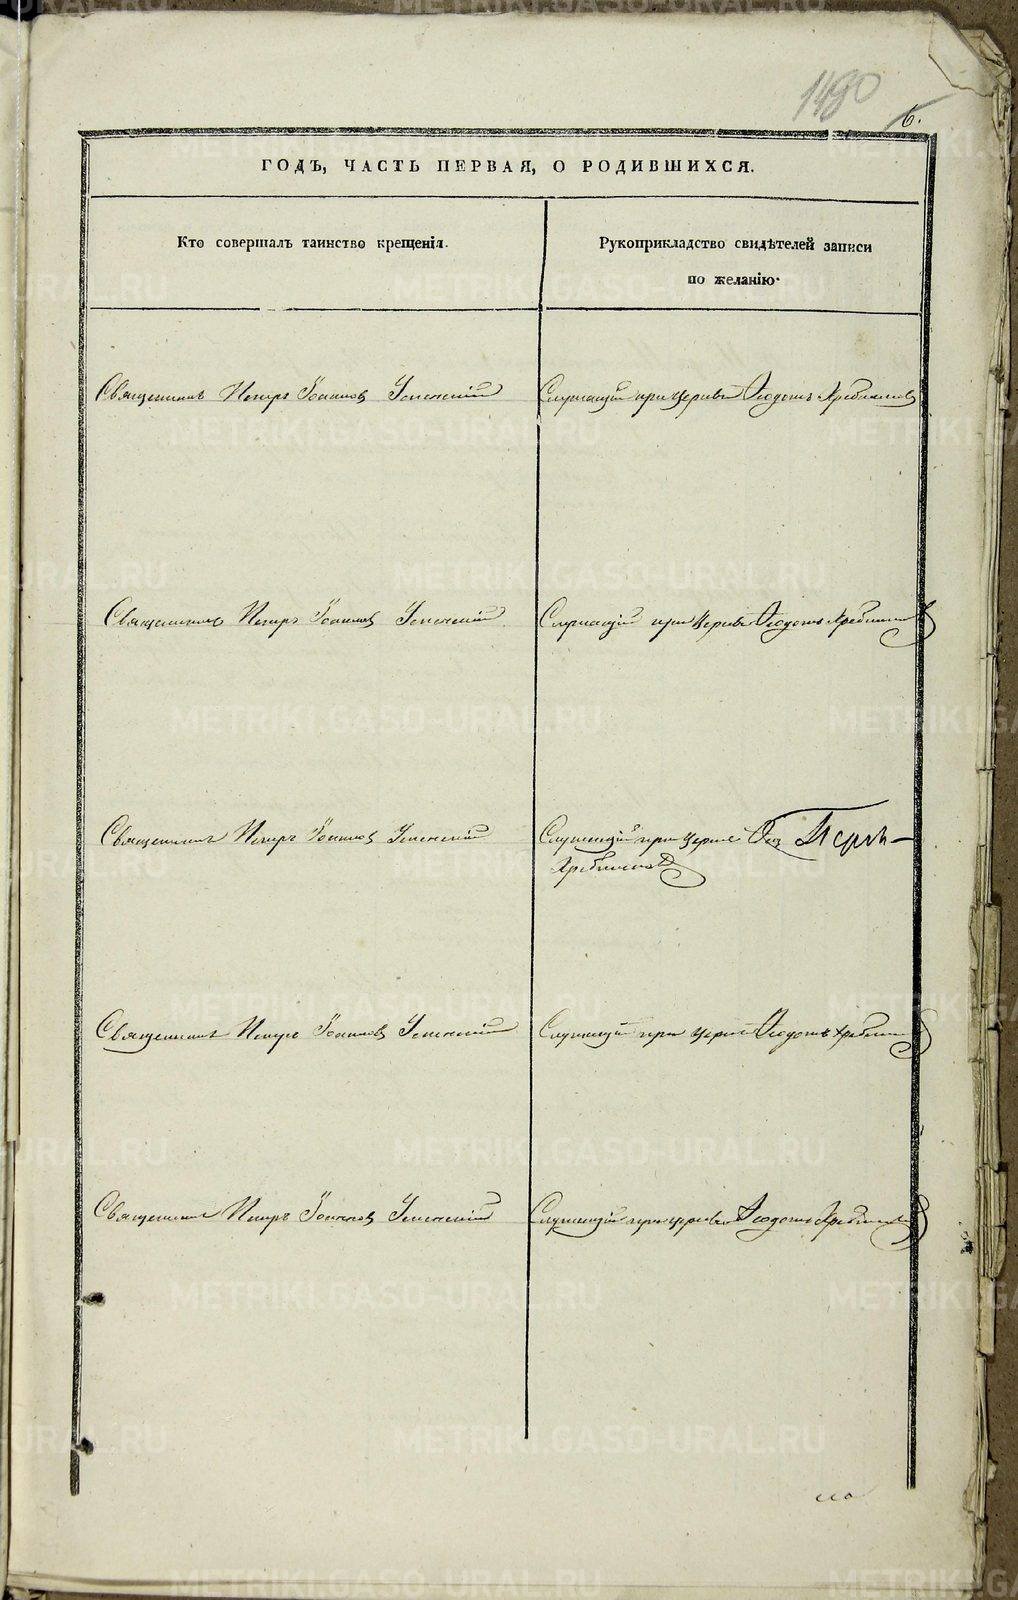 1480
6.
ГОДЪ, ЧАСТЬ ПЕРВАЯ, О РОДИВШИХСЯ.
Кто совершалъ таинство крещенія.
Рукоприкладство свидѣтелей записи
по желанію.
Священникъ Петръ Іоанновъ Успенскій
Служащій при церкви Ѳеодотъ
Священникъ Петръ Іоанновъ Успенскій
Служащій при церкви Ѳеодотъ
Священникъ Петръ Іоанновъ Успенскій
Служащій при церкви
Священникъ Петръ Іоанновъ Успенскій
Служащій при церкви Ѳеодотъ
Священникъ Петръ Іоанновъ Успенскій
Служащій при церкви Ѳеодотъ
METRIKI.GASO-URAL.RU